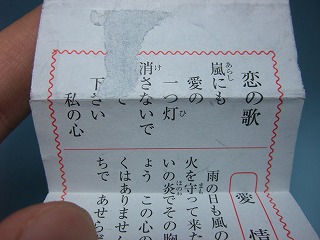 恋の歌
嵐にも
愛の
一つ灯
消さないで
て
下さい
私の心
愛情
雨の日も風の
火を守って来た
いの炎でその胸
ょう この心の
くはありません
ちで あせら